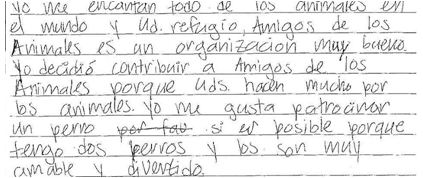 Yo me encantan todo de los animales en
el mundo y Ud. refugio, Amigos de los
Animales es un organización muy bueno.
Yo decidió contribuir a Amigos de los
Animales porque Uds. hacen mucho por
los animales. Yo me gusta patrocinar
un perro por fav si es posible porque
tengo dos perros y los son muy
amable y divertido.